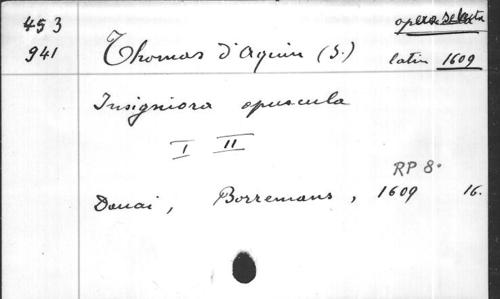 453 opera selecta
941 Thomas d'Aquin (S.) latin 1609
Insigniora opuscula
I II
RP 8°
Douai, Borremans, 1609 16.